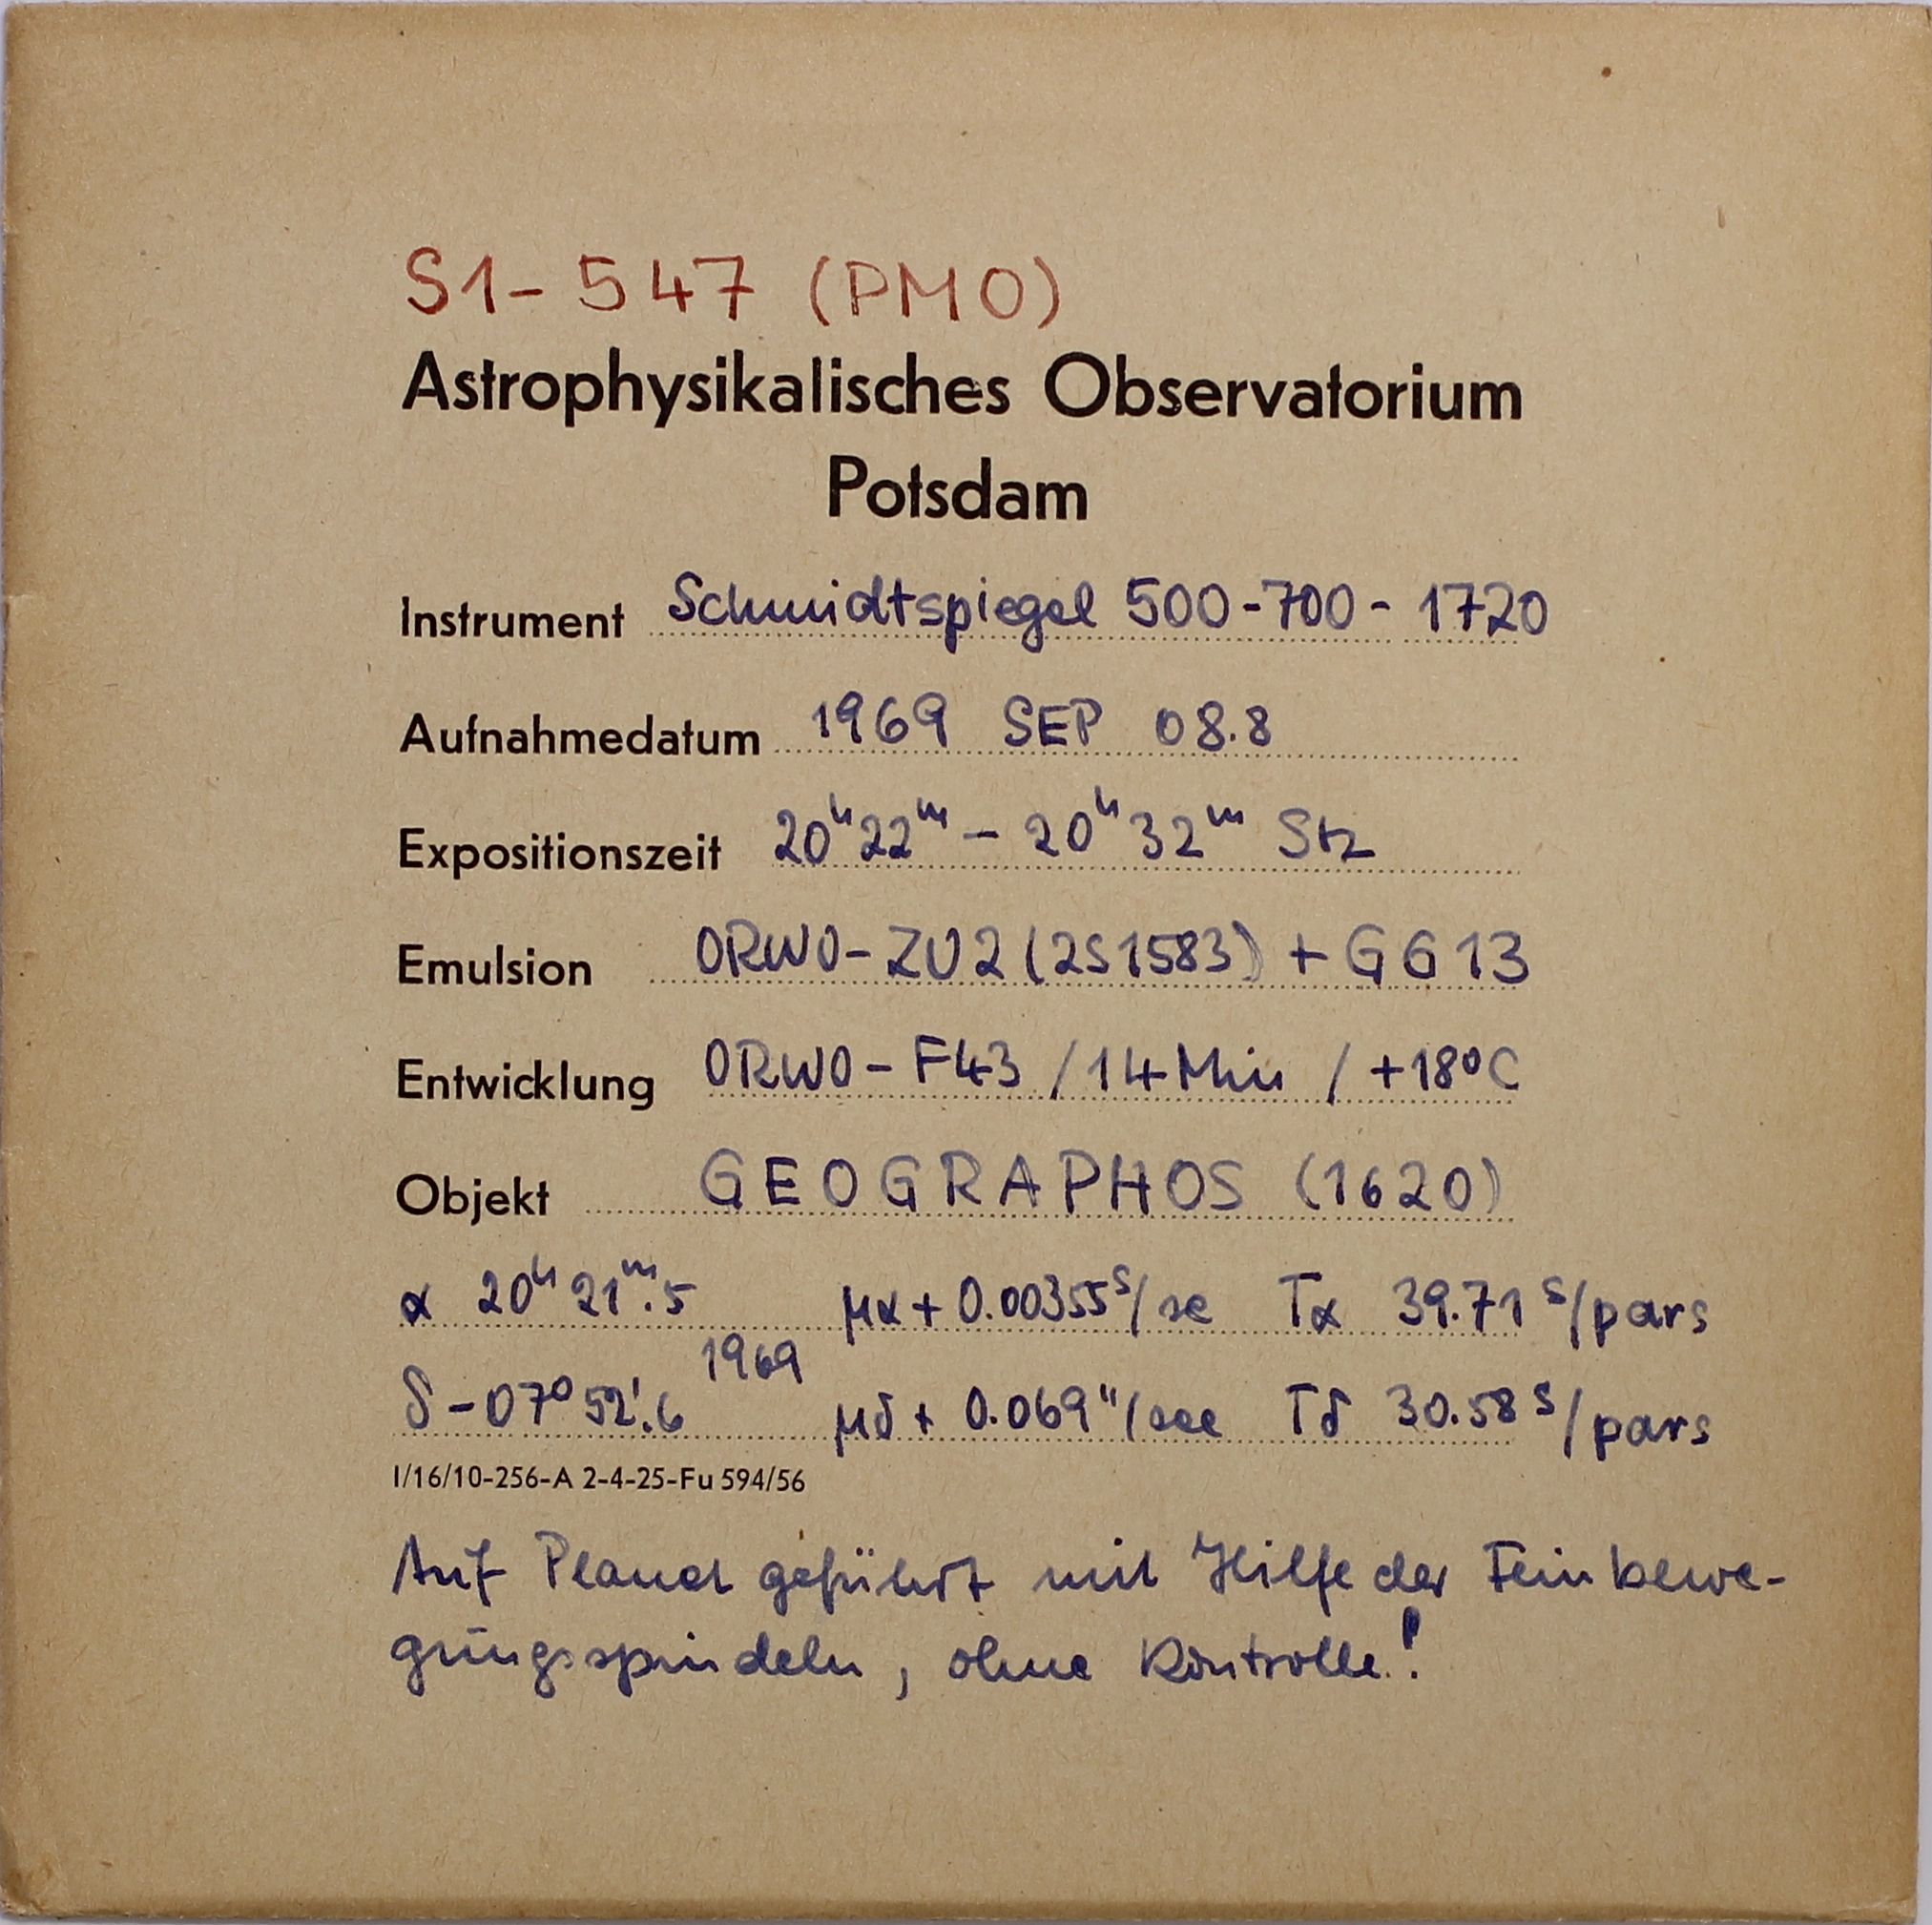 S1-547 (PMO)
Astrophysikalisches Observatorium
Potsdam
Instrument Schmidtspiegel 500-700-1720
Aufnahmedatum 1969 SEP 08.8
Expositionszeit 20ʰ22ᵐ – 20ʰ32ᵐ Stz
Emulsion ORWO-ZU2 (2S1583) + GG13
Entwicklung ORWO-F43 / 14 Min / +18°C
Objekt GEOGRAPHOS (1620)
α 20ʰ 21ᵐ.5 μα + 0.00355ˢ/se Tα 39.71 ˢ/pars
1969
δ -07° 52'.6 μδ + 0.069"/sec Tδ 30.58 ˢ/pars
I/16/10-256-A 2-4-25-Fu 594/56
Auf Planet geführt mit Hilfe der Feinbewe-
gungsspindeln, ohne Kontrolle!